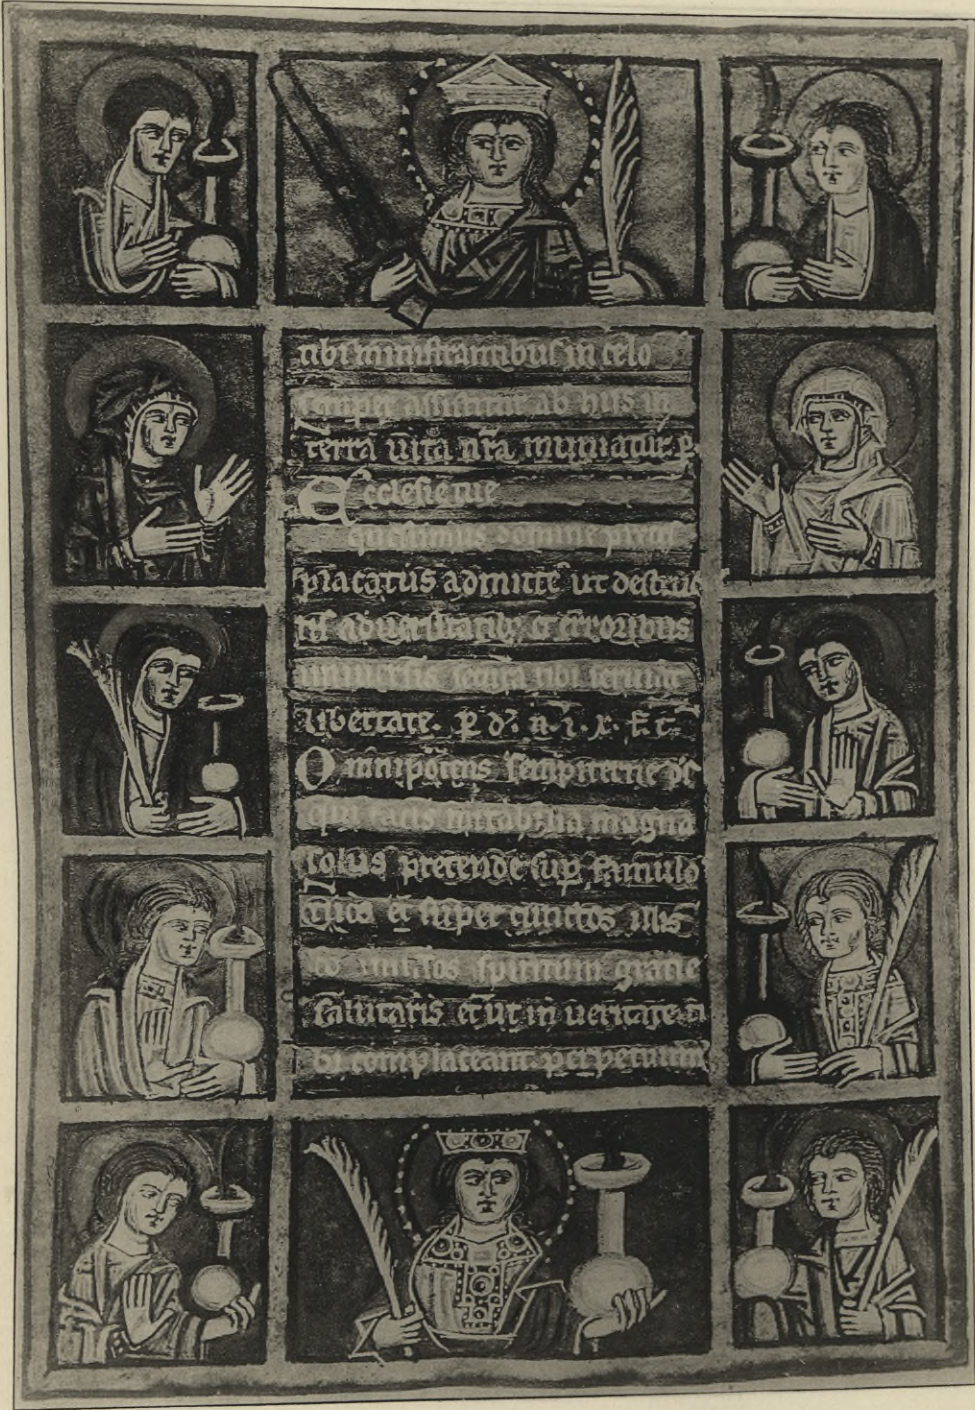 tibi ministrantibus in celo
semper assistitur ab hiis in
terra uita nr̄a muniatur. ꝑ
Ecclesie tue
quesumus domine preces
placatus admitte ut destruc
tis aduersitatibꝫ et erroribus
uniuersis secura tibi seruiat
libertate. ꝑ d. n. i. x. f. t.
Omnipotens sempiterne ds̄
qui facis mirabilia magna
solus pretende suꝑ famulos
tuos et super cunctos illis
spiritum gratie
salutaris et ut in ueritate ti
bi complaceant perpetuum